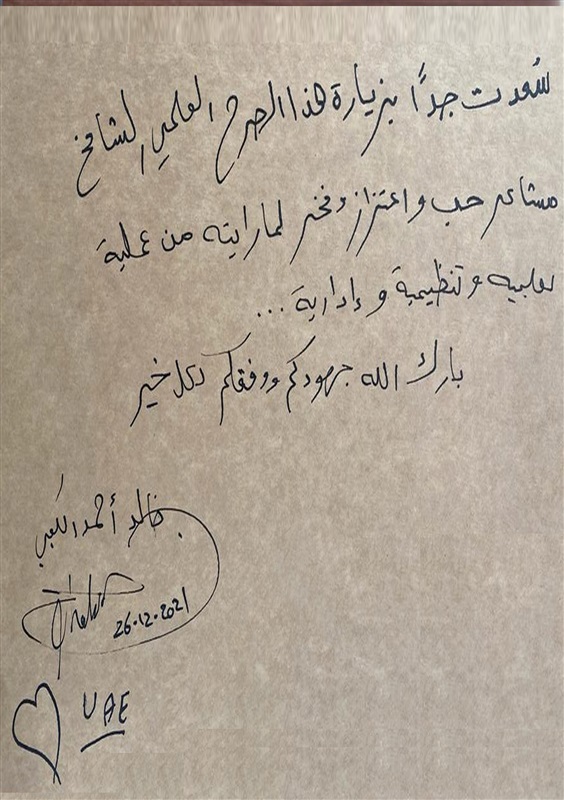 سُعدت جدًا بزيارة هذا الصرح العلمي الشامخ
مشاعر حب واعتزاز وفخر لما رايته من عملية
تعليمية وتنظيمية وإدارية ...
بارك الله جهودكم ووفقكم لكل خير
خالد أحمد الكعبي
26.12.2021
UAE